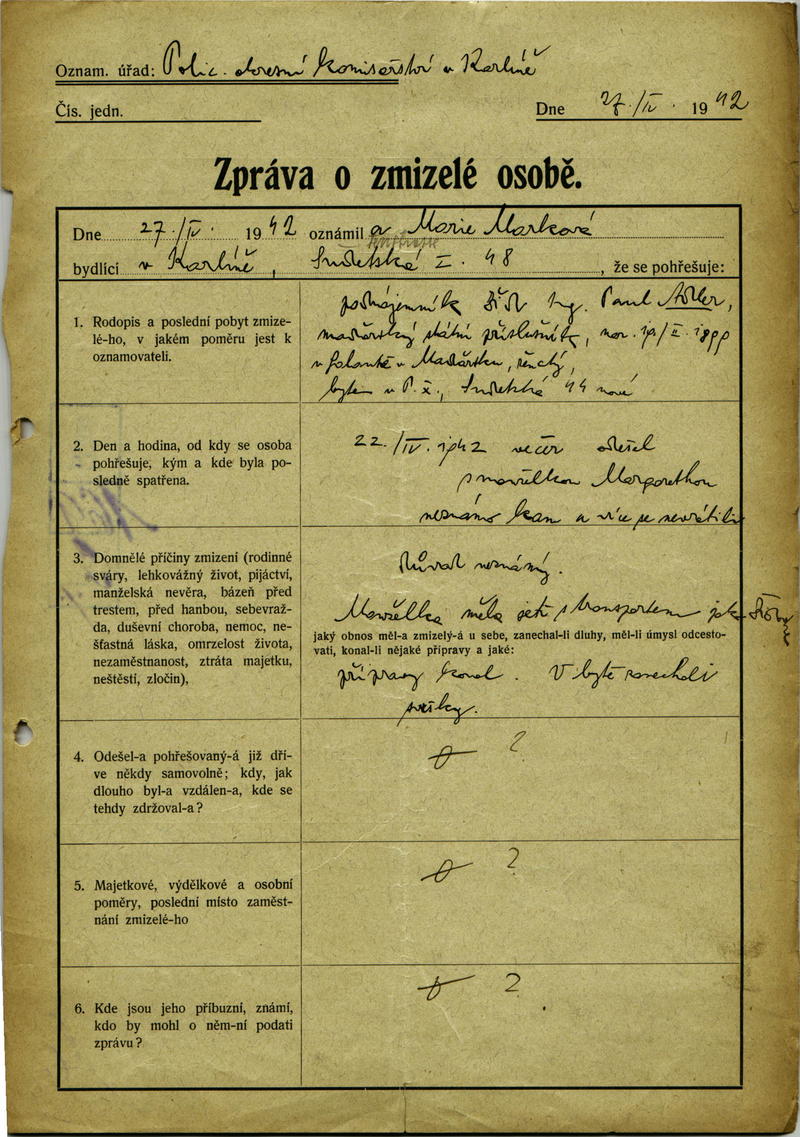 Oznam. úřad: Polic. okresní komisařství v Karlíně
Čís. jedn.
Dne 27./IV. 1942
Zpráva o zmizelé osobě.
Dne 27./IV. 1942 oznámil a Marie Marková
bydlící v Karlíně, Sudetská I. 48, že se pohřešuje:
1. Rodopis a poslední pobyt zmize-
lé-ho, v jakém poměru jest k
oznamovateli.
podnájemník Ing. Paul Adler,
maďarský státní příslušník, nar.
v Maďarsku, ženatý,
bytem v P. X., Sudetská 44 nové
2. Den a hodina, od kdy se osoba
pohřešuje, kým a kde byla po-
sledně spatřena.
22./IV. 1942 večer odešel
s manželkou Margarethou
neznámo kam a více se nevrátili
3. Domnělé příčiny zmizení (rodinné
sváry, lehkovážný život, pijáctví,
manželská nevěra, bázeň před
trestem, před hanbou, sebevraž-
da, duševní choroba, nemoc, ne-
šťastná láska, omrzelost života,
nezaměstnanost, ztráta majetku,
neštěstí, zločin),
Důvod neznámý.
Manželka měla jeti s transportem jako
jaký obnos měl-a zmizelý-á u sebe, zanechal-li dluhy, měl-li úmysl odcesto-
vati, konal-li nějaké přípravy a jaké:
přípravy konal. V bytě zanechali
svršky.
4. Odešel-a pohřešovaný-á již dří-
ve někdy samovolně; kdy, jak
dlouho byl-a vzdálen-a, kde se
tehdy zdržoval-a?
?
5. Majetkové, výdělkové a osobní
poměry, poslední místo zaměst-
nání zmizelé-ho
?
6. Kde jsou jeho příbuzní, známí,
kdo by mohl o něm-ní podati
zprávu?
?